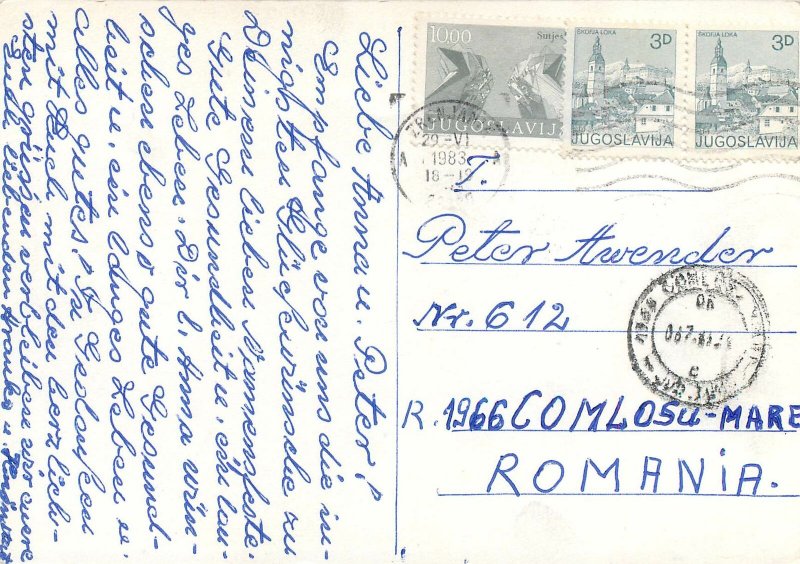 Liebe Anna u. Peter!
Empfange von uns die in-
nigsten Glückwünsche zu
Deinem lieben Namensfeste.
Gute Gesundheit u. ein lan-
ges Leben. Dir l. Anna wün-
schen ebenso gute Gesund-
heit u. ein langes Leben u.
alles gutes! In Gedanken
mit Euch mit den herzlich-
sten grüssen verbleiben wir eure
Gute liebenden
1000
Sutjes
JUGOSLAVIJ
ŠKOFJA LOKA
3D
JUGOSLAVIJA
ŠKOFJA LOKA
3D
JUGOSLAVIJA
29-VI
1983
18-12
T.
Peter Awender
Nr. 612
R. 1966 COMLOSU-MARE
ROMANIA.
1966 COMLOS